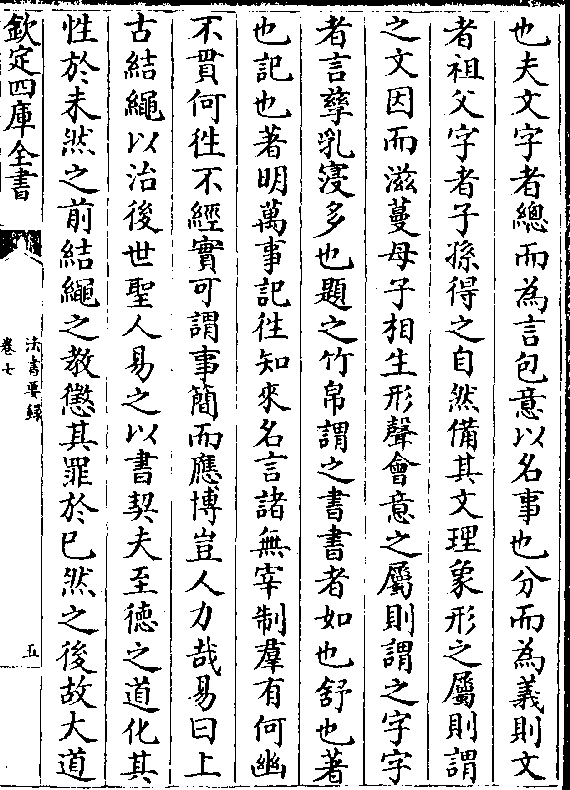 也夫文字者總而為言包意以名事也分而為義則文
者祖父字者子孫得之自然備其文理象形之屬則謂
之文因而滋蔓母子相生形聲會意之屬則謂之字字
者言孳乳寖多也題之竹帛謂之書書者如也舒也著
也記也著明萬事記往知來名言諸無宰制羣有何幽
不貫何往不經實可謂事簡而應博豈人力哉易曰上
古結繩以治後世聖人易之以書契夫至徳之道化其
性於未然之前結繩之教懲其罪於已然之後故大道
欽定四庫全書
法書要録
卷七
五